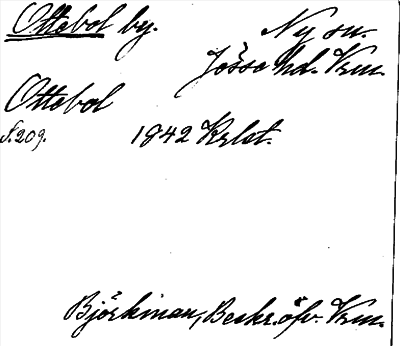 Ottebol by. Ny sn.
Jösse hd. Vrm.
Ottebol
S. 209. 1842 Krlst.
Björkman, Beskr. öfv. Vrm.